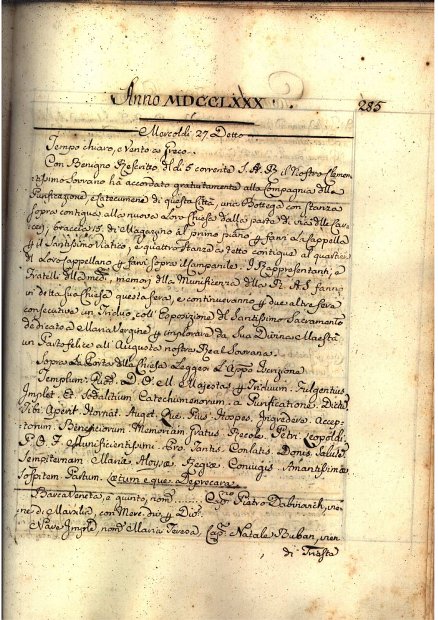 Anno MDCCLXXX.
285
Mercoldì 27 Detto
Tempo chiaro, e Vento fresco.
Con Benigno Rescritto del dì 5 corrente S. A. R. il Nostro Clemen-
tissimo Sovrano ha accordato gratuitamente alla Compagnia della
Purificazione, e Catecumeni di questa Città, una Bottega con stanza
sopra contigua alla nuova Loro Chiesa dalla parte di via delle Car-
ceri, braccia 15. di Magazzino al primo piano p farvi La Cappella
p il Santissimo Viatico, e quattro Stanze a tetto contigue al quartiere
di Loro Cappellano p farvi sopra il Campanile; I Rappresentanti, e
Fratelli della med. memori della Munificenza della R. A. S. fanno
in detta sua Chiesa questa sera, e continueranno p due altre sere
consecutive un Triduo coll' Esposizione del Santissimo Sacramento
dedicato a Maria Vergine p implorare da Sua Divina Maestà
un Parto felice all' Augusta nostra Real Sovrana.
Sopra La Porta della Chiesa Leggesi L'App. Iscrizione
Templum D. O. M. Majestas p Triduum. Fulgentius
Implet. Et Sodalitum Catechumenorum. a Purificatione. Dictum
Tibi. Aperit. Hornat. Auget. Que. Pius. Hospes. Ingredere. Accep-
torum. Beneficiorum. Memoriam. Gratus. Recole. Petri. Leopoldi.
P. O. F. Munificentissimi. Pro. Tantis. Conlatis. Donis. Salutem
Sempiternam. Mariæ. Aloysiæ. Regiæ. Coniugis. Amantissimæ
Sospitem. Partum. Cœtum. eque. a Deprecare.
Barca Veneta, e quinto, nom. ...... Cap.no Pietro Dabinovich, vie-
ne di Marsilia, con Merc. div. p Div.
Nave Imple, nom. Maria Teresa, Cap. Natale Buban, vien
di Trieste